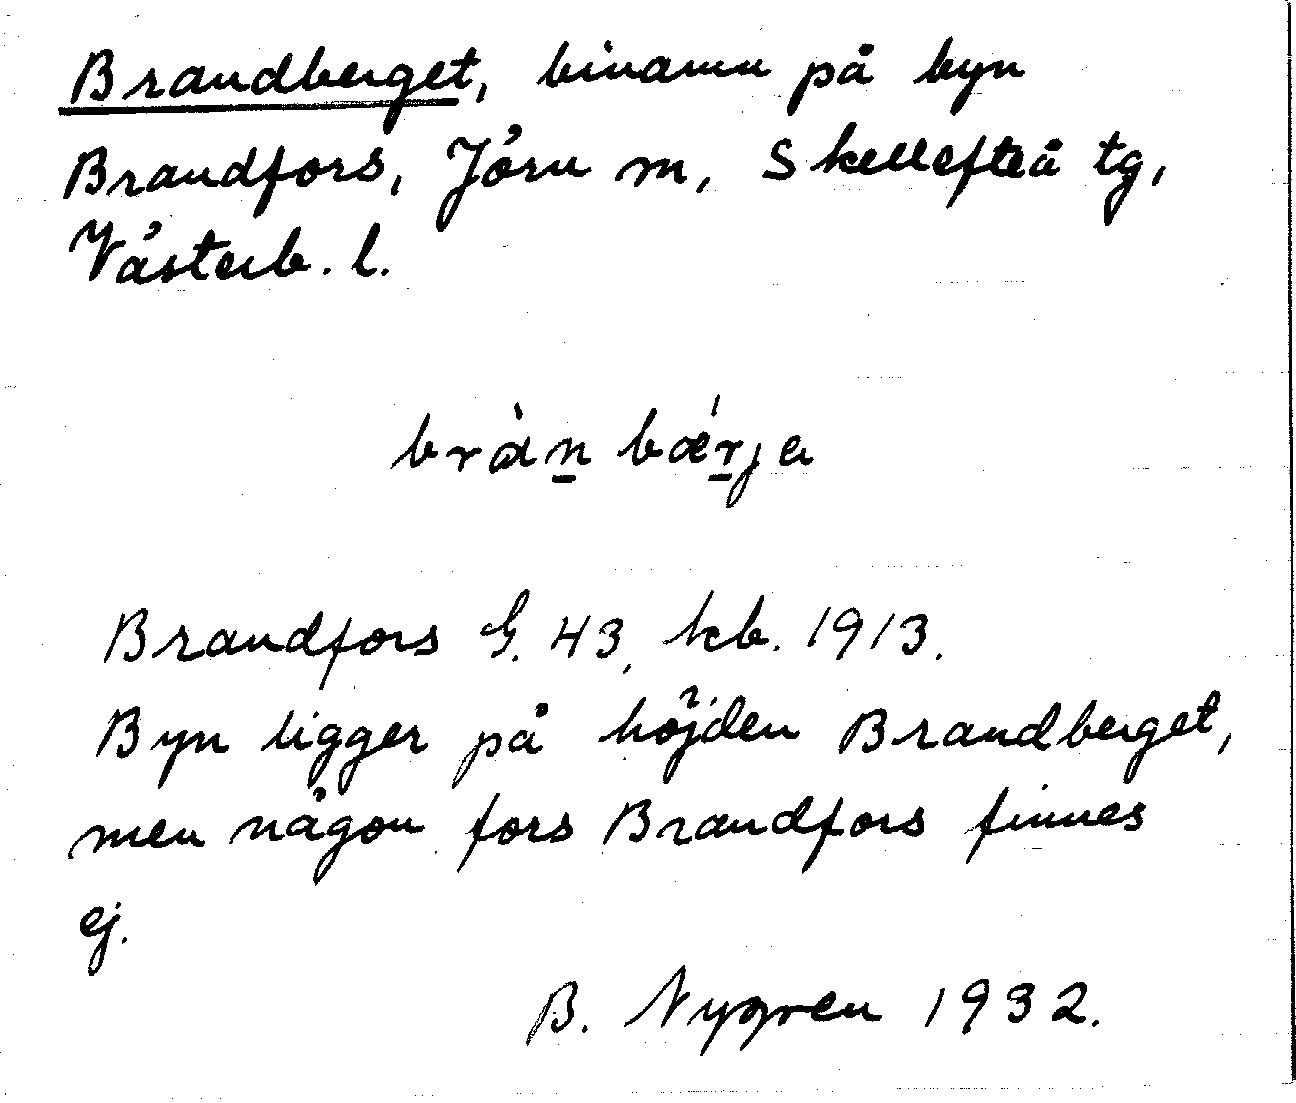 Brandberget, binamn på byn
Brandfors, Jörn m, Skellefteå tg,
Västerb. l.
bràn bǽrja
Brandfors G. 43, kb. 1913.
Byn ligger på höjden Brandberget,
men någon fors Brandfors finnes
ej.
B. Nygren 1932.